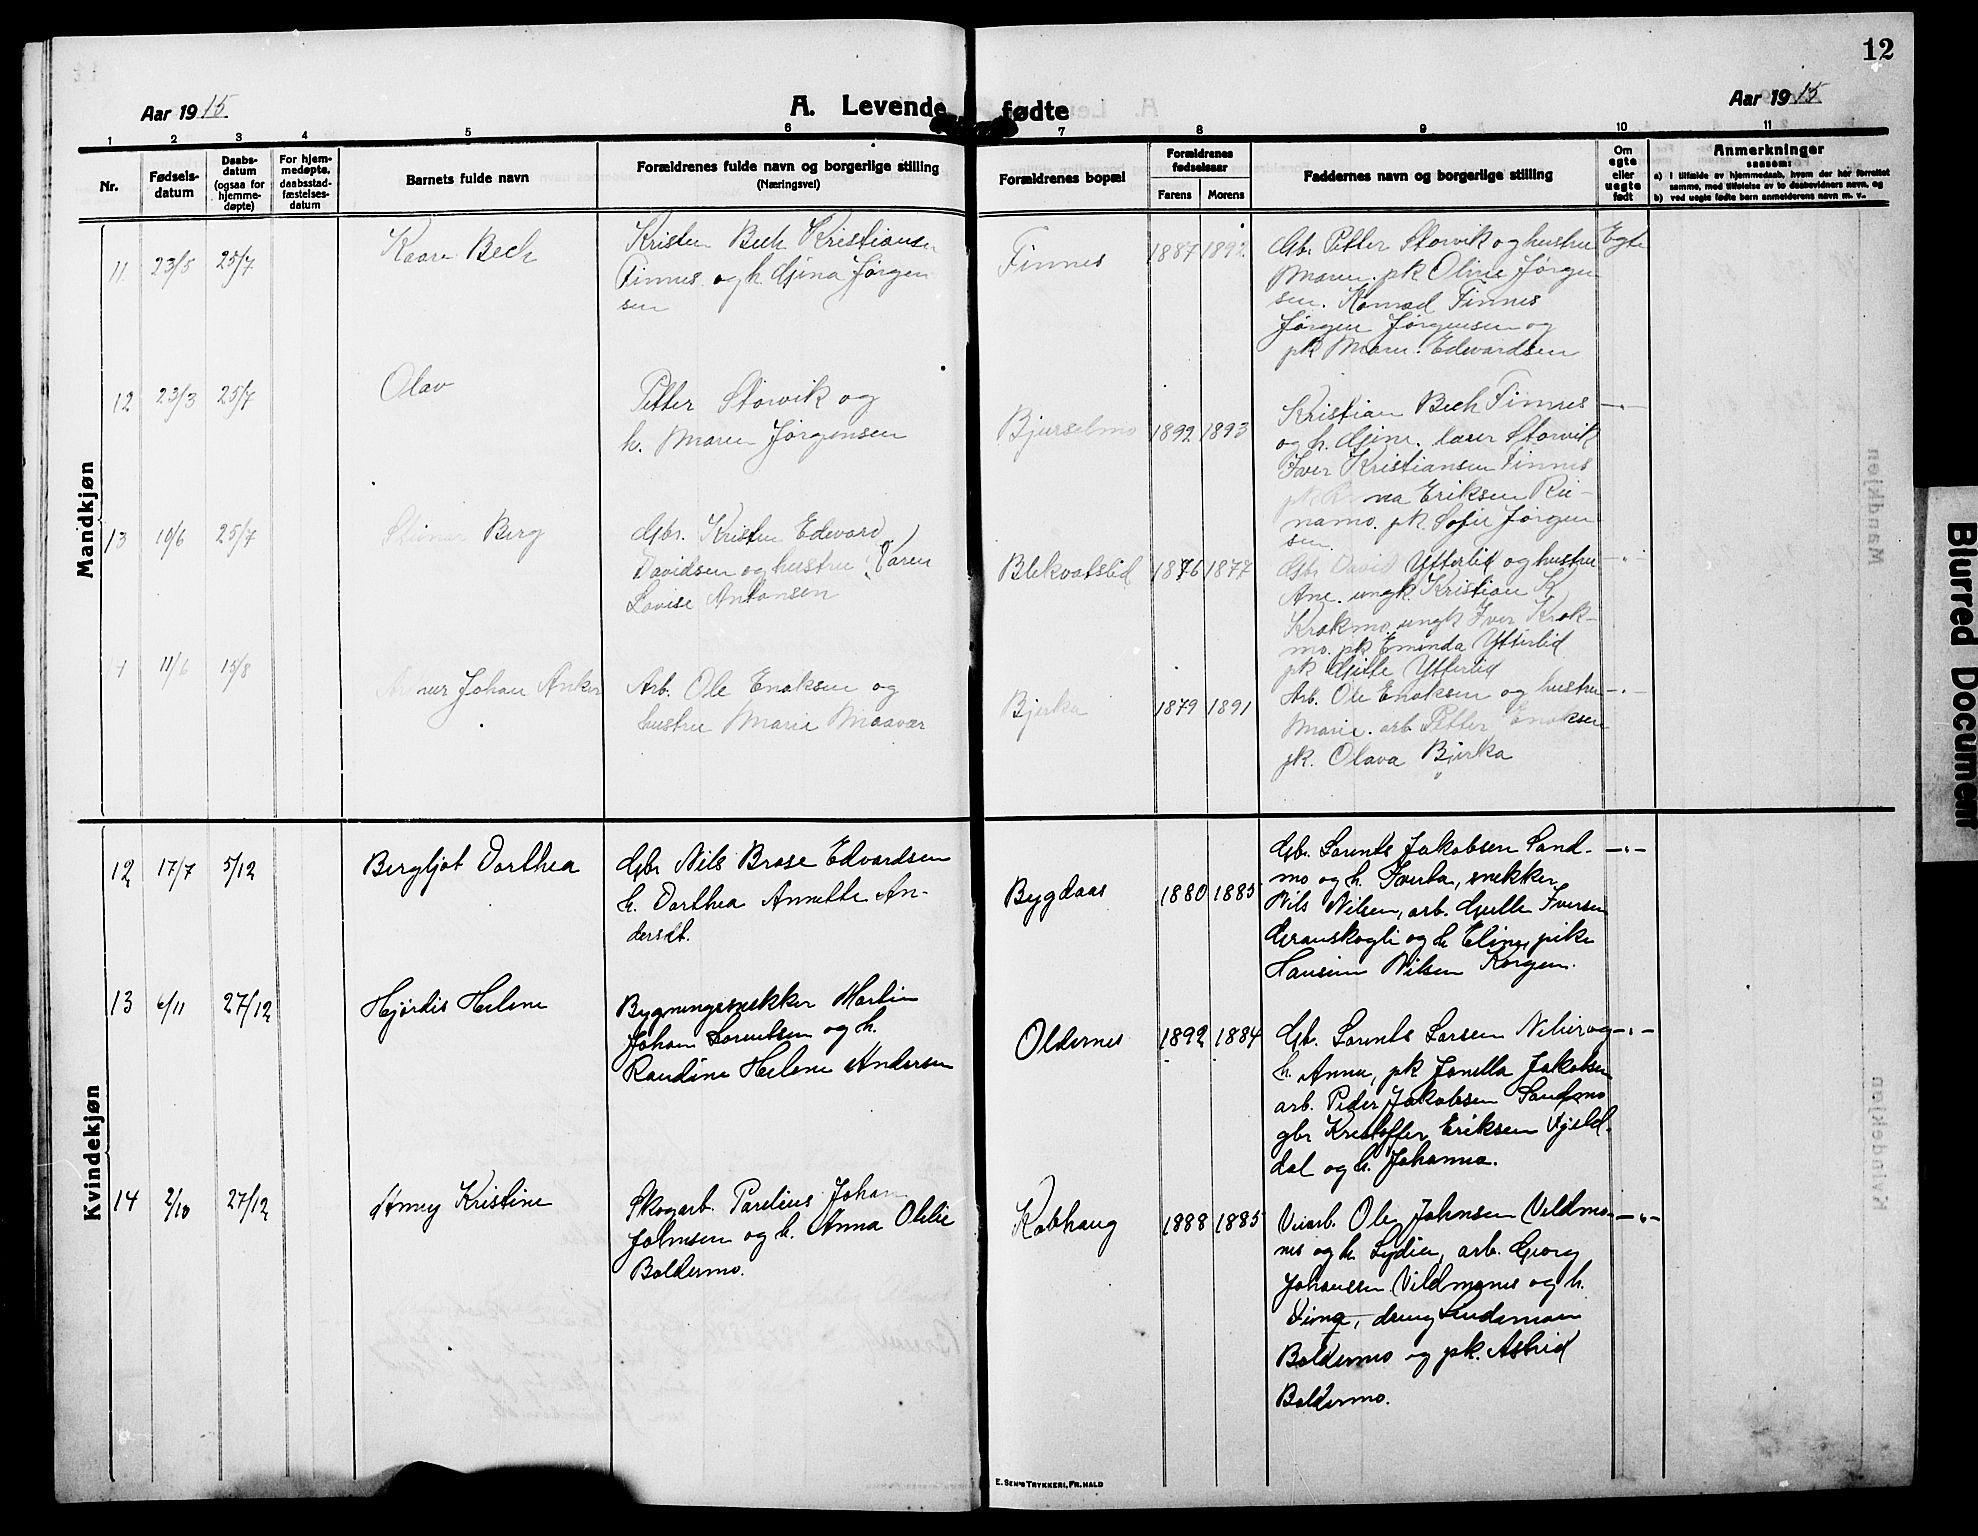 12
Aar 1915
A. Levende fødte
Aar 1915
1 2 3 4 5 6 7 8 9 10 11
Nr.
Fødsels-
datum
Daabs-
datum
(ogsaa for
hjemme-
døpte)
For hjem-
medøpte,
daabsstad-
fæstelses-
datum
Barnets fulde navn
Forældrenes fulde navn og borgerlige stilling
(Næringsvei)
Forældrenes bopæl
Forældrenes
fødselsaar
Farens Morens
Faddernes navn og borgerlige stilling
Om
egte
eller
uegte
født
Anmerkninger
saasom:
a) i tilfælde av hjemmedaab, hvem der har forrettet
samme, med tilføielse av to daabsvidners navn, og
b) ved uegte fødte barn anmelderens navn m. v.
Mandkjøn
11 23/5 25/7
Kaare Bech
Kristen Bech Kristiansen
Finnes og h. Gjina Jørgen
sen
Finnes
1887 1892
Gbr. Petter Storvik og hustru
Maren. pk Oline Jørgen
sen. Konrad Finnes
Jørgen Jørgensen og
pk Maren Edvardsen
Egte
12 23/3 25/7
Olav
Petter Storvik og
h. Maren Jørgensen
Bjurselmo
1892 1893
Kristian Bech Finnes
og h. Gjine. lærer Storvik
Iver Kristiansen Finnes
na Eriksen Rie-
namo. pk Sofie Jørgen
sen
—„—
13 10/6 25/7
Steinar Berg
Gbr. Kristen Edvard
Davidsen og hustru Karen
Lovise Antonsen
Blekvatslid
1876 1877
Gbr David Ytterlid og hustru
Ane. ungk. Kristian K
Krokmo. ungk Iver Krok-
mo. pk Eminda Ytterlid
pk Gitte Ytterlid
—„—
11/6 15/8
Johan Anker
Arb. Ole Enoksen og
hustru Marie Maavær
Bjerka
1879 1891
Arb. Ole Enoksen og hustru
Marie. arb Petter Enoksen
pk. Olava Bjerka
—„—
Kvindekjøn
12 17/7 5/12
Bergljot Dorthea
Gbr Nils Brose Edvardsen
h. Dorthea Annette An-
dersdt.
Bygdaas
1880 1885
Gbr. Lorents Jakobsen Sand-
mo og h. Iverta, snekker
Nils Nilsen, arb. Iversen
Granskogli og h Eline, pike
Nilsen Korgen.
—„—
13 6/11 27/12
Hjørdis Helene
Bygningssnekker Martin
Johan Lorentsen og h.
Raudine Helene Andersen
Oldernes
1892 1884
Gb. Lorents Larsen og
h. Anna, pk Jonella Jakobsen
arb. Peder Jakobsen Sandmo
gbr Kristoffer Eriksen Kjeld-
dal og h. Johanna.
—„—
14 2/10 27/12
Anny Kristine
Skogarb. Parelius Johan
Johnsen og h. Anna Otelie
Boldermo.
Kobhaug
1888 1885
Veiarb. Ole Johnsen Vildmo-
nes og h Lydia, arb. Georg
Johansen Vildmones og h.
dreng Lindeman
Boldermo og pk. Astrid
Boldermo.
—„—
E. SEM'S TRYKKERI, FR. HALD
Blurred Document